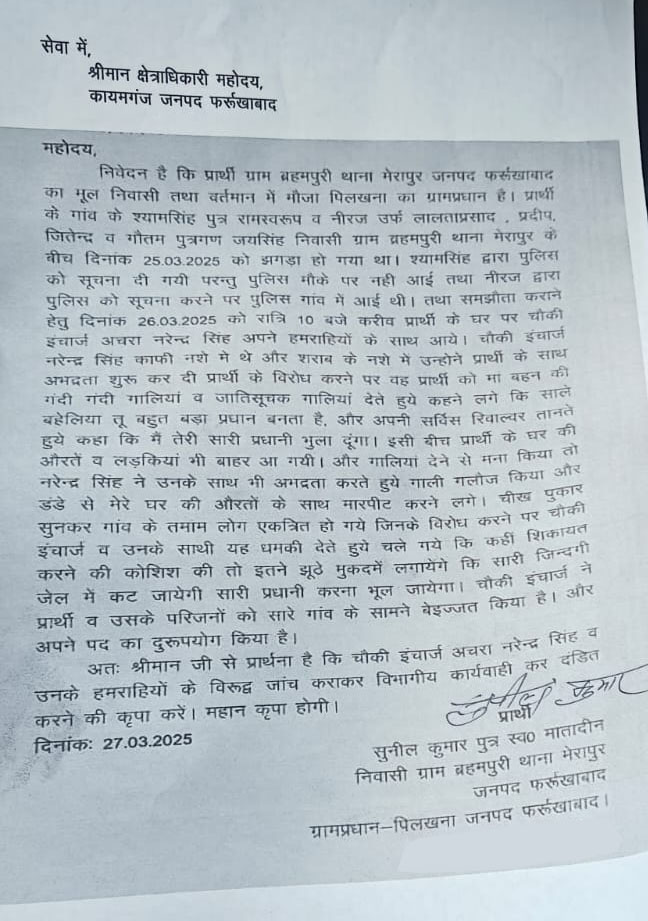 सेवा में,
श्रीमान क्षेत्राधिकारी महोदय,
कायमगंज जनपद फर्रूखाबाद
महोदय,
निवेदन है कि प्रार्थी ग्राम ब्रहमपुरी थाना मेरापुर जनपद फर्रूखाबाद
का मूल निवासी तथा वर्तमान में मौजा पिलखना का ग्रामप्रधान है। प्रार्थी
के गांव के श्यामसिंह पुत्र रामस्वरूप व नीरज उर्फ लालताप्रसाद , प्रदीप,
जितेन्द्र व गौतम पुत्रगण जयसिंह निवासी ग्राम ब्रहमपुरी थाना मेरापुर के
बीच दिनांक 25.03.2025 को झगड़ा हो गया था। श्यामसिंह द्वारा पुलिस
को सूचना दी गयी परन्तु पुलिस मौके पर नही आई तथा नीरज द्वारा
पुलिस को सूचना करने पर पुलिस गांव में आई थी। तथा समझौता कराने
हेतु दिनांक 26.03.2025 को रात्रि 10 बजे करीव प्रार्थी के घर पर चौकी
इंचार्ज अचरा नरेन्द्र सिंह अपने हमराहियों के साथ आये। चौकी इंचार्ज
नरेन्द्र सिंह काफी नशे मे थे और शराब के नशे में उन्होने प्रार्थी के साथ
अभद्रता शुरू कर दी प्रार्थी के विरोध करने पर वह प्रार्थी को मां बहन की
गंदी गंदी गालियां व जातिसूचक गालियां देते हुये कहने लगे कि साले
बहेलिया तू बहुत बड़ा प्रधान बनता है, और अपनी सर्विस रिवाल्वर तानते
हुये कहा कि मैं तेरी सारी प्रधानी भुला दूंगा। इसी बीच प्रार्थी के घर की
औरतें व लड़कियां भी बाहर आ गयी। और गालियां देने से मना किया तो
नरेन्द्र सिंह ने उनके साथ भी अभद्रता करते हुये गाली गलौज किया और
डंडे से मेरे घर की औरतों के साथ मारपीट करने लगे। चीख पुकार
सुनकर गांव के तमाम लोग एकत्रित हो गये जिनके विरोध करने पर चौकी
इंचार्ज व उनके साथी यह धमकी देते हुये चले गये कि कहीं शिकायत
करने की कोशिश की तो इतने झूठे मुकदमें लगायेंगे कि सारी जिन्दगी
जेल में कट जायेगी सारी प्रधानी करना भूल जायेगा। चौकी इंचार्ज ने
प्रार्थी व उसके परिजनों को सारे गांव के सामने बेइज्जत किया है। और
अपने पद का दुरूपयोग किया है।
अतः श्रीमान जी से प्रार्थना है कि चौकी इंचार्ज अचरा नरेन्द्र सिंह व
उनके हमराहियों के विरूद्व जांच कराकर विभागीय कार्यवाही कर दंडित
करने की कृपा करें। महान कृपा होगी।
सुनील कुमार
प्रार्थी
दिनांकः 27.03.2025
सुनील कुमार पुत्र स्व0 मातादीन
निवासी ग्राम ब्रहमपुरी थाना मेरापुर
जनपद फर्रूखाबाद
ग्रामप्रधान–पिलखना जनपद फर्रूखाबाद।